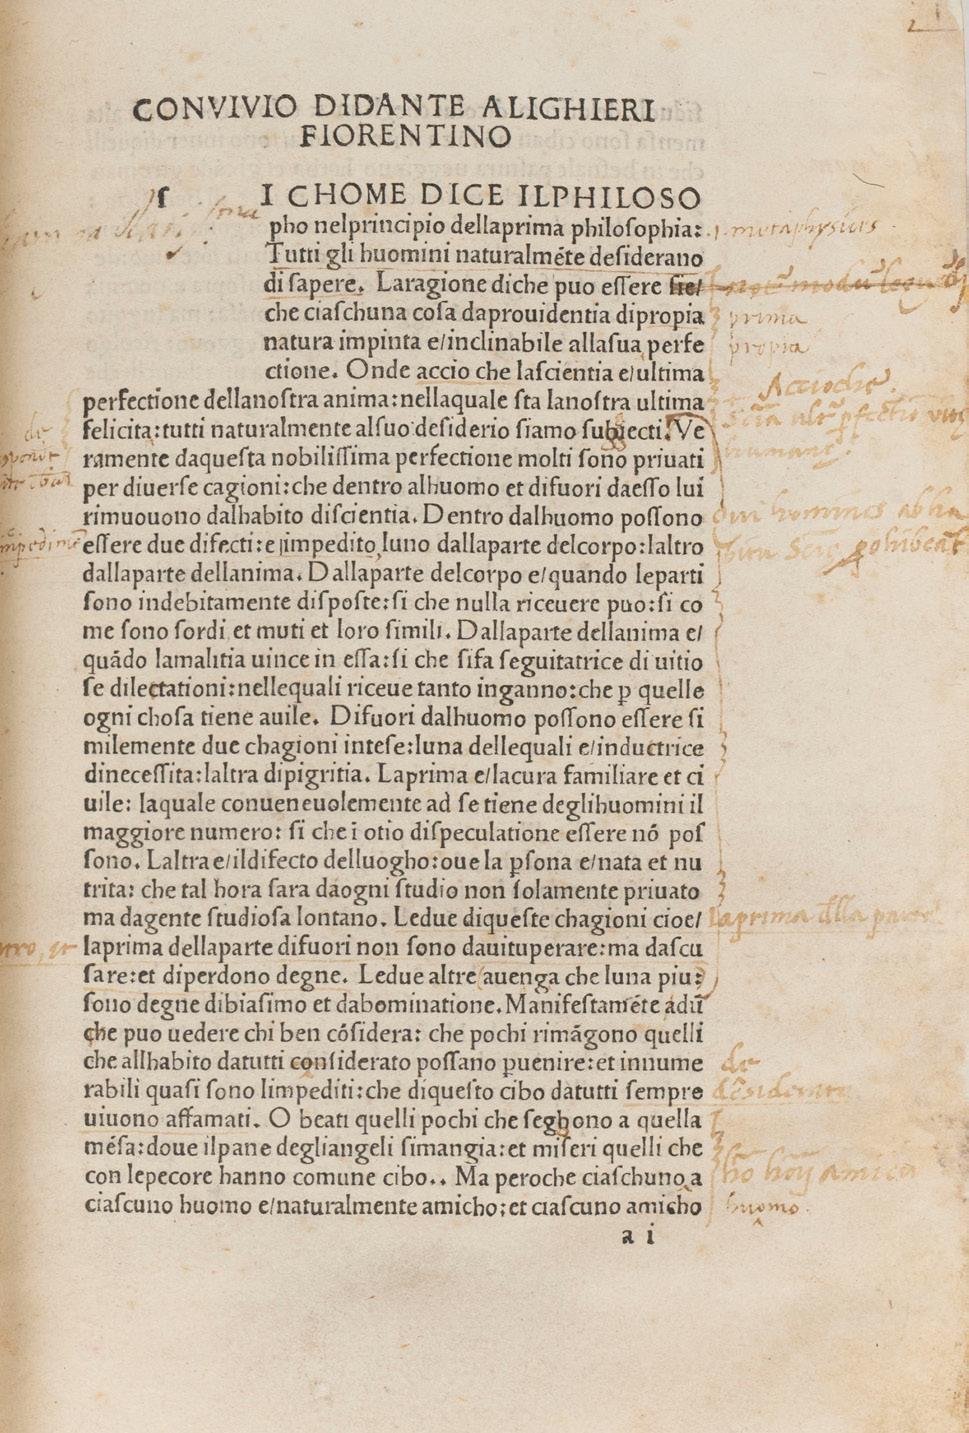 2
CONVIVIO DIDANTE ALIGHIERI
FIORENTINO
ſ I CHOME DICE ILPHILOSO
pho nelprincipio dellaprima philoſophia:
metaphysicis
Tutti gli huomini naturalméte deſiderano
di ſapere. Laragione diche puo eſſere ſie/
che ciaſchuna coſa daprouidentia dipropia
prima
natura impinta e/inclinabile allaſua perfe
propia
ctione. Onde accio che laſcientia e/ultima
Accioche.
perfectione dellanoſtra anima:nellaquale ſta lanoſtra ultima
felicita:tutti naturalmente alſuo deſiderio ſiamo ſubiecti. Ve
de
ramente daqueſta nobiliſſima perfectione molti ſono priuati
per diuerſe cagioni:che dentro alhuomo et difuori daeſſo lui
rimuouono dalhabito diſcientia. Dentro dalhuomo poſſono
homines ab
eſſere due difecti:e impedito luno dallaparte delcorpo:laltro
dallaparte dellanima. Dallaparte delcorpo e/quando leparti
ſono indebitamente diſpoſte:ſi che nulla riceuere puo:ſi co
me ſono ſordi et muti et loro ſimili. Dallaparte dellanima e/
quádo lamalitia uince in eſſa:ſi che ſifa ſeguitatrice di uitio
ſe dilectationi:nellequali riceue tanto inganno:che ꝑ quelle
ogni choſa tiene auile. Difuori dalhuomo poſſono eſſere ſi
milemente due chagioni inteſe:luna dellequali e/inductrice
dineceſſita:laltra dipigritia. Laprima e/lacura familiare et ci
uile: laquale conueneuolemente ad ſe tiene deglihuomini il
maggiore numero: ſi che ī otio diſpeculatione eſſere nó poſ
ſono. Laltra e/ildifecto delluogho:oue la ꝑſona e/nata et nu
trita: che tal hora ſara daogni ſtudio non ſolamente priuato
ma dagente ſtudioſa lontano. Ledue diqueſte chagioni cioe/
laprima dlla parte
laprima dellaparte difuori non ſono dauituperare:ma daſcu
ſare:et diperdono degne. Ledue altre auenga che luna piu:
ſono degne dibiaſimo et dabominatione. Manifeſtaméte adū
che puo uedere chi ben cóſidera: che pochi rimágono quelli
che allhabito datutti conſiderato poſſano ꝑuenire:et innume
de
rabili quaſi ſono limpediti:che diqueſto cibo datutti ſempre
desiderato
uiuono affamati. O beati quelli pochi che ſeghono a quella
méſa:doue ilpane degliangeli ſimangia:et miſeri quelli che
con lepecore hanno comune cibo.. Ma peroche ciaſchuno a
ciaſcuno huomo e/naturalmente amicho:et ciaſcuno amicho
huomo
a i